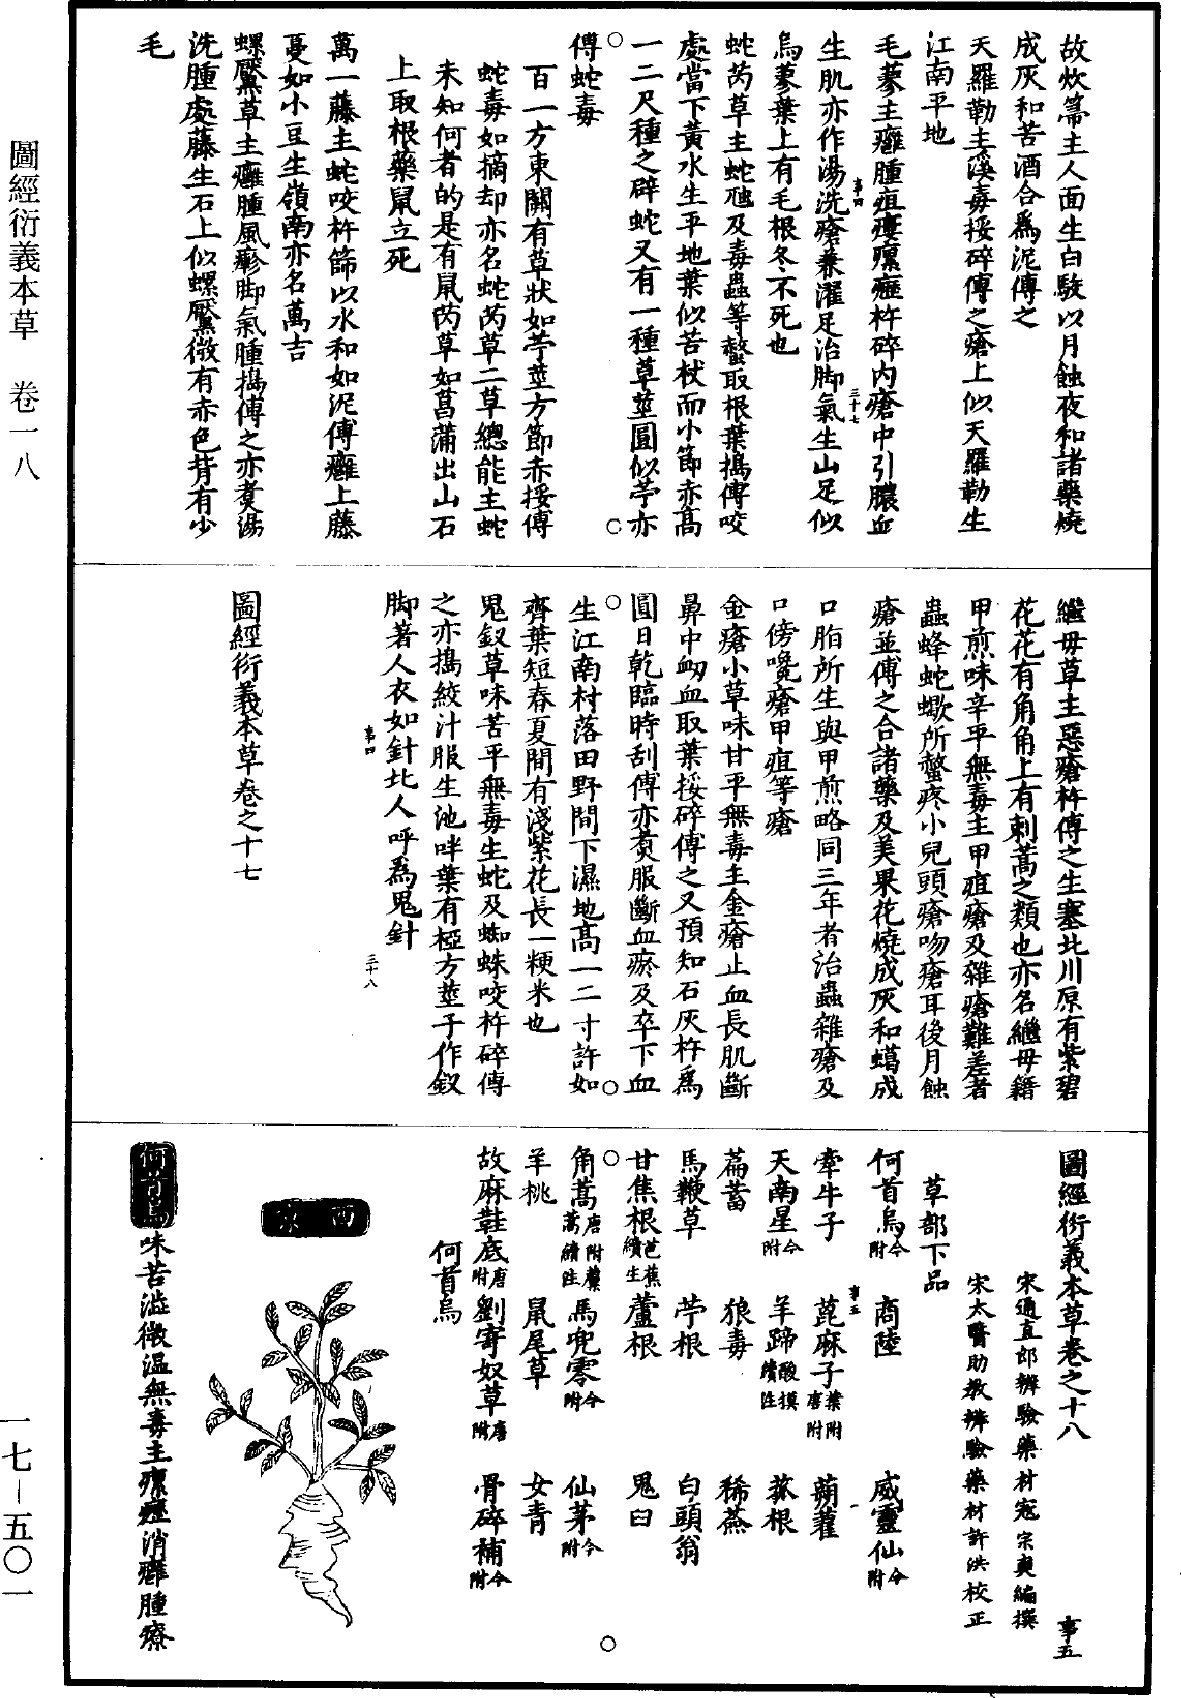 故炊箒主人面生白駮以月蝕夜和諸藥燒
成灰和苦酒合為泥傅之
天羅勒主溪毒挼碎傅之瘡上似天羅勒生
江南平地
毛蓼主癰腫疽瘻瘰癧杵碎內瘡中引膿血
生肌亦作湯洗瘡兼濯足治脚氣生山足似
烏蓼葉上有毛根冬不死也
蛇芮草主蛇虺及毒蟲等螫取根葉搗傅咬
處當下黃水生平地葉似苦杖而小節赤高
一二尺種之辟蛇又有一種草莖圓似苧亦
傅蛇毒
百一方東關有草狀如苧莖方節赤挼傅
蛇毒如摘却亦名蛇芮草二草總能主蛇
未知何者的是有鼠芮草如菖蒲出山石
上取根藥鼠立死
萬一藤主蛇咬杵篩以水和如泥傅癰上藤
蔓如小豆生嶺南亦名萬吉
螺黶草主癰腫風疹脚氣腫搗傅之亦煑湯
洗腫處藤生石上似螺黶微有赤色背有少
毛
事四
三十七
繼母草主惡瘡杵傅之生塞北川原有紫碧
花花有角角上有刺蒿之類也亦名繼母籍
甲煎味辛平無毒主甲疽瘡及雜瘡難差者
蟲蜂蛇蠍所螫疼小兒頭瘡吻瘡耳後月蝕
瘡並傅之合諸藥及美果花燒成灰和蠟成
口脂所生與甲煎略同三年者治蟲雜瘡及
口傍嚵瘡甲疽等瘡
金瘡小草味甘平無毒主金瘡止血長肌斷
鼻中衄血取葉挼碎傅之又預知石灰杵為
圓日乾臨時刮傅亦煑服斷血瘀及卒下血
生江南村落田野間下濕地高一二寸許如
薺葉短春夏間有淺紫花長一粳米也
鬼釵草味苦平無毒主蛇及蜘蛛咬杵碎傅
之亦搗絞汁服生池畔葉有椏方莖子作釵
脚著人衣如針北人呼為鬼針
事四
三十八
圖經衍義本草卷之十七
圖經衍義本草卷之十八
事五
宋通直郎辨驗藥材寇宗奭編撰
宋太醫助教辨驗藥材許洪校正
草部下品
何首烏今附 商陸 威靈仙今附
牽牛子 蓖麻子葉附唐附 蒴藋
天南星今附 羊蹄酸摸續注 菰根
萹蓄 狼毒 豨薟
馬鞭草 苧根 白頭翁
甘焦根芭蕉續生 蘆根 鬼臼
角蒿唐附蘪蒿續注 馬兜零今附 仙茅今附
羊桃 鼠尾草 女青
故麻鞋底唐附 劉寄奴草唐附 骨碎補今附
事五
一
何首烏
西京
何首烏味苦澁微温無毒主瘰癧消癰腫療
圖經衍義本草 卷一八
一七—五〇一